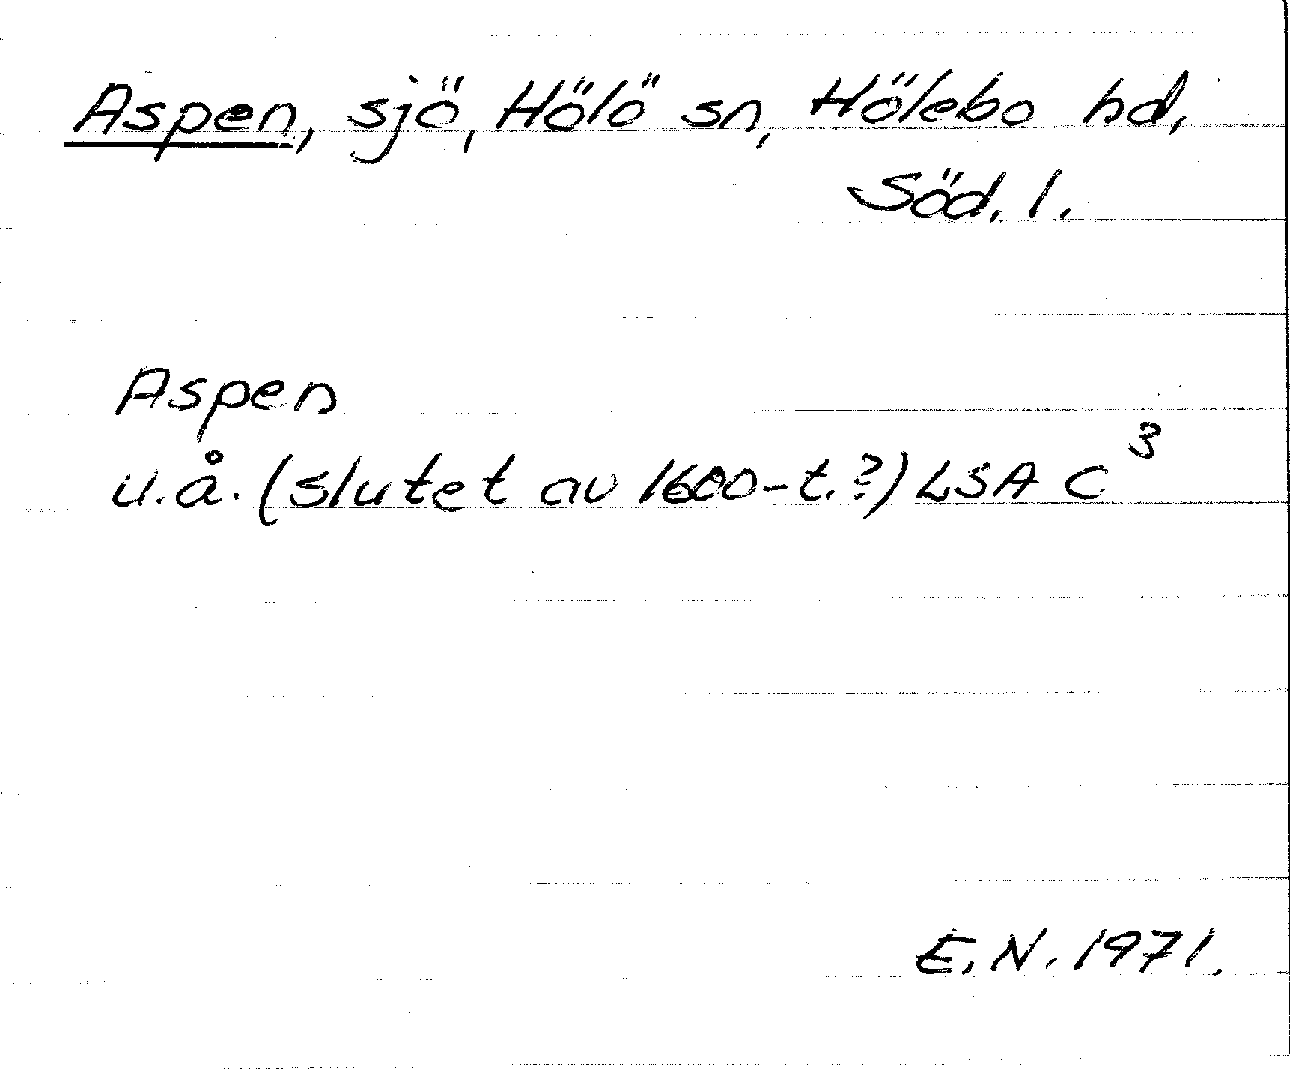 Aspen, sjö, Hölö sn, Hölebo hd,
Söd. l.
Aspen
u.å. (slutet av 1600-t.?) LSA C³
E.N. 1971.